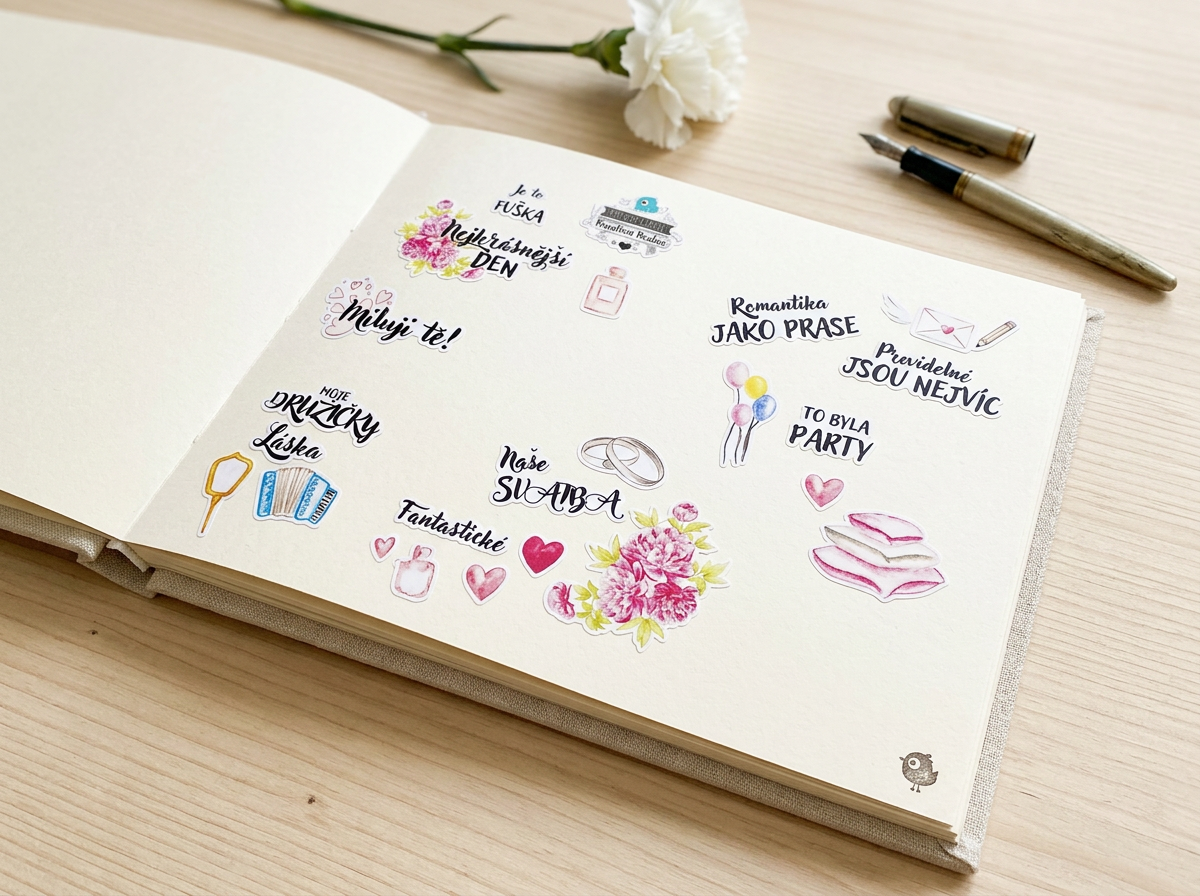 Je to
FUŠKA
Nejkrásnější
DEN
Miluji tě!
Romantika
JAKO PRASE
Pravidelné
JSOU NEJVÍC
TO BYLA
PARTY
MOJE
DRUŽIČKY
Láska
Naše
SVATBA
Fantastické